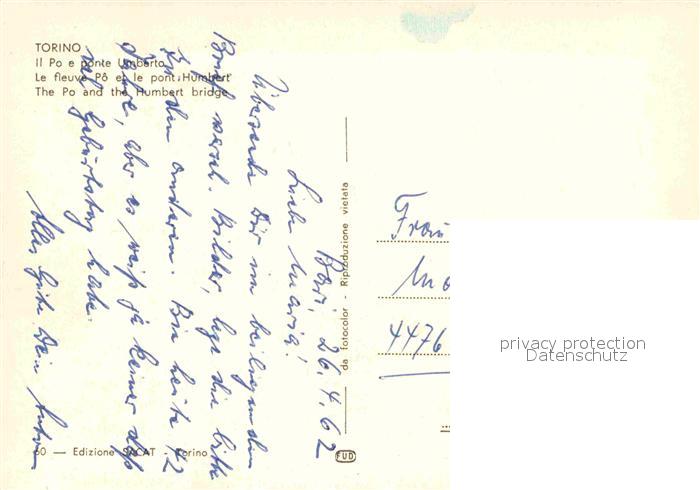 TORINO
Il Po e ponte Umberto
Le fleuve Pô et le pont Humbert
The Po and the Humbert bridge
Bari, 26.4.62
Liebe Maria!
Übersende Dir im beiliegenden
Brief versch. Bilder, lege die bitte
zu den anderen. Bin heute 42
Jahre, aber es weiß ja keiner daß
ich Geburtstag habe.
Alles Gute Dein Anton
60 — Edizione SACAT - Torino
da fotocolor - Riproduzione vietata
FUD
Frau
4476
privacy protection
Datenschutz